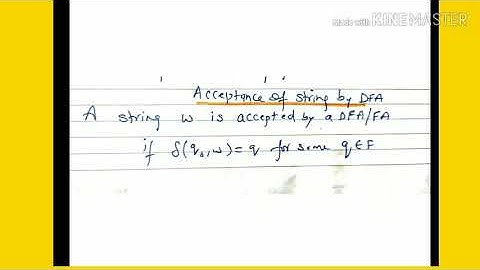 Made with KINEMASTER
Acceptance of string by DFA
A string w is accepted by a DFA/FA
if δ(q₀,w) = q for some q ∈ F